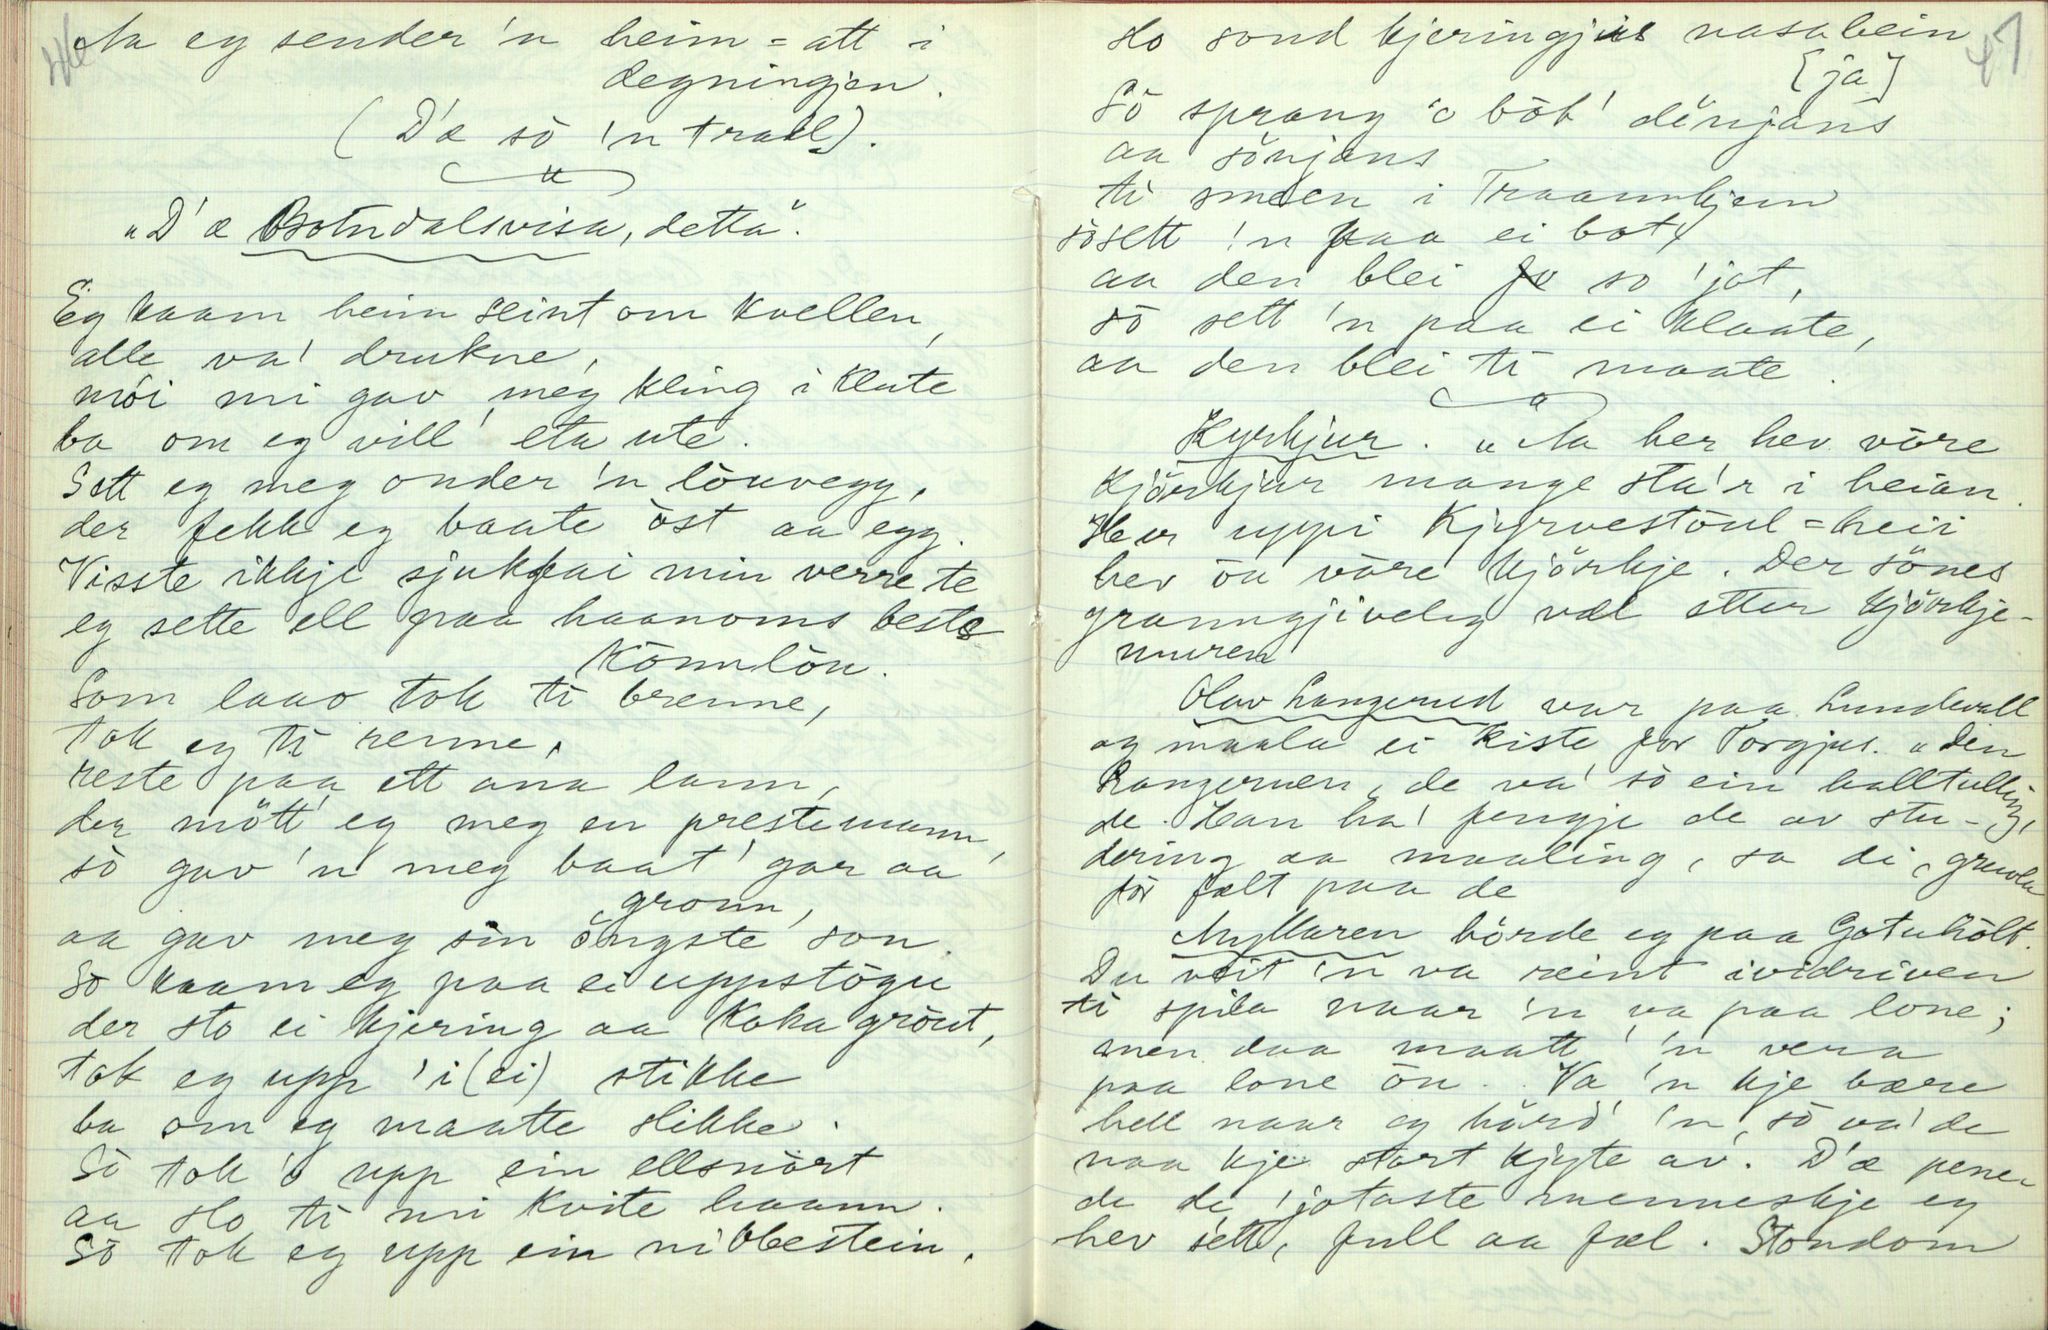 46
Aa eg sender 'n heim = att i
degningjen.
(D'æ sò 'n træel).
"
"D'æ Botndalsvisa, detta".
Eg kaam heim seint om kvellen,
alle va' drukne,
mói mi gav meg kling i klute
ba om eg vill' eta ute.
Sett eg meg onder 'n lòuvegg,
der fekk eg baate òst aa egg.
Visste ikkje sjukfai min verre te
eg sette ell paa haanoms beste
kònnlòu.
Som laao tok ti brenne,
tok eg ti renne,
reste paa ett ana lann,
der mött' eg meg en prestemann,
sò gav 'n meg baat' gar aa
gronn,
aa gav meg sin öngste son.
Sò kaam eg paa ei uppstògu
der sto ei kjering aa koka gròut,
tok eg upp 'i (ei) stikke
ba om eg maatte slikke.
Sò tok 'o upp ein ellsnòrt
aa slo ti mi kvite haann.
Sò tok eg upp ein nibbestein,
47
slo sond kjeringjis nasabein
[ja]
Sò sprang 'o bòt' dönjans
aa sönjans
ti smeen i Traannhjem
sò sett 'n paa ei bot,
aa den blei so 'jot,
sò sett 'n paa ei klaate,
aa den blei ti maate.
"
Kyrkjur. "Aa her hev vòre
kjörkjur mange sta'r i heian.
Her uppi Kjyrvestòul = heii
hev òu vòre kjörkje. Der sönes
granngjiveleg væl etter kjörkje-
muren
Olav Langerud var paa Lundevall
og maala ei kiste for Torgjus. "Den
Langeruen, de va' sò ein halltulling,
de. Han ha' fengje de av stu-
dering aa maaling, sa di, gruvla
før fælt paa de
Myllaren hörde eg paa Gotuhòlt.
Du veit 'n va reint ividriven
ti spila naar 'n va paa lone;
men daa maatt' 'n vera
paa lone òu. Va 'n kje bære
hell naar eg hörd' 'n, sò va' de
naa kje stort kjyte av. D'æ pene-
de de 'jotaste menneskje eg
hev sett, full aa fæl. Stondom